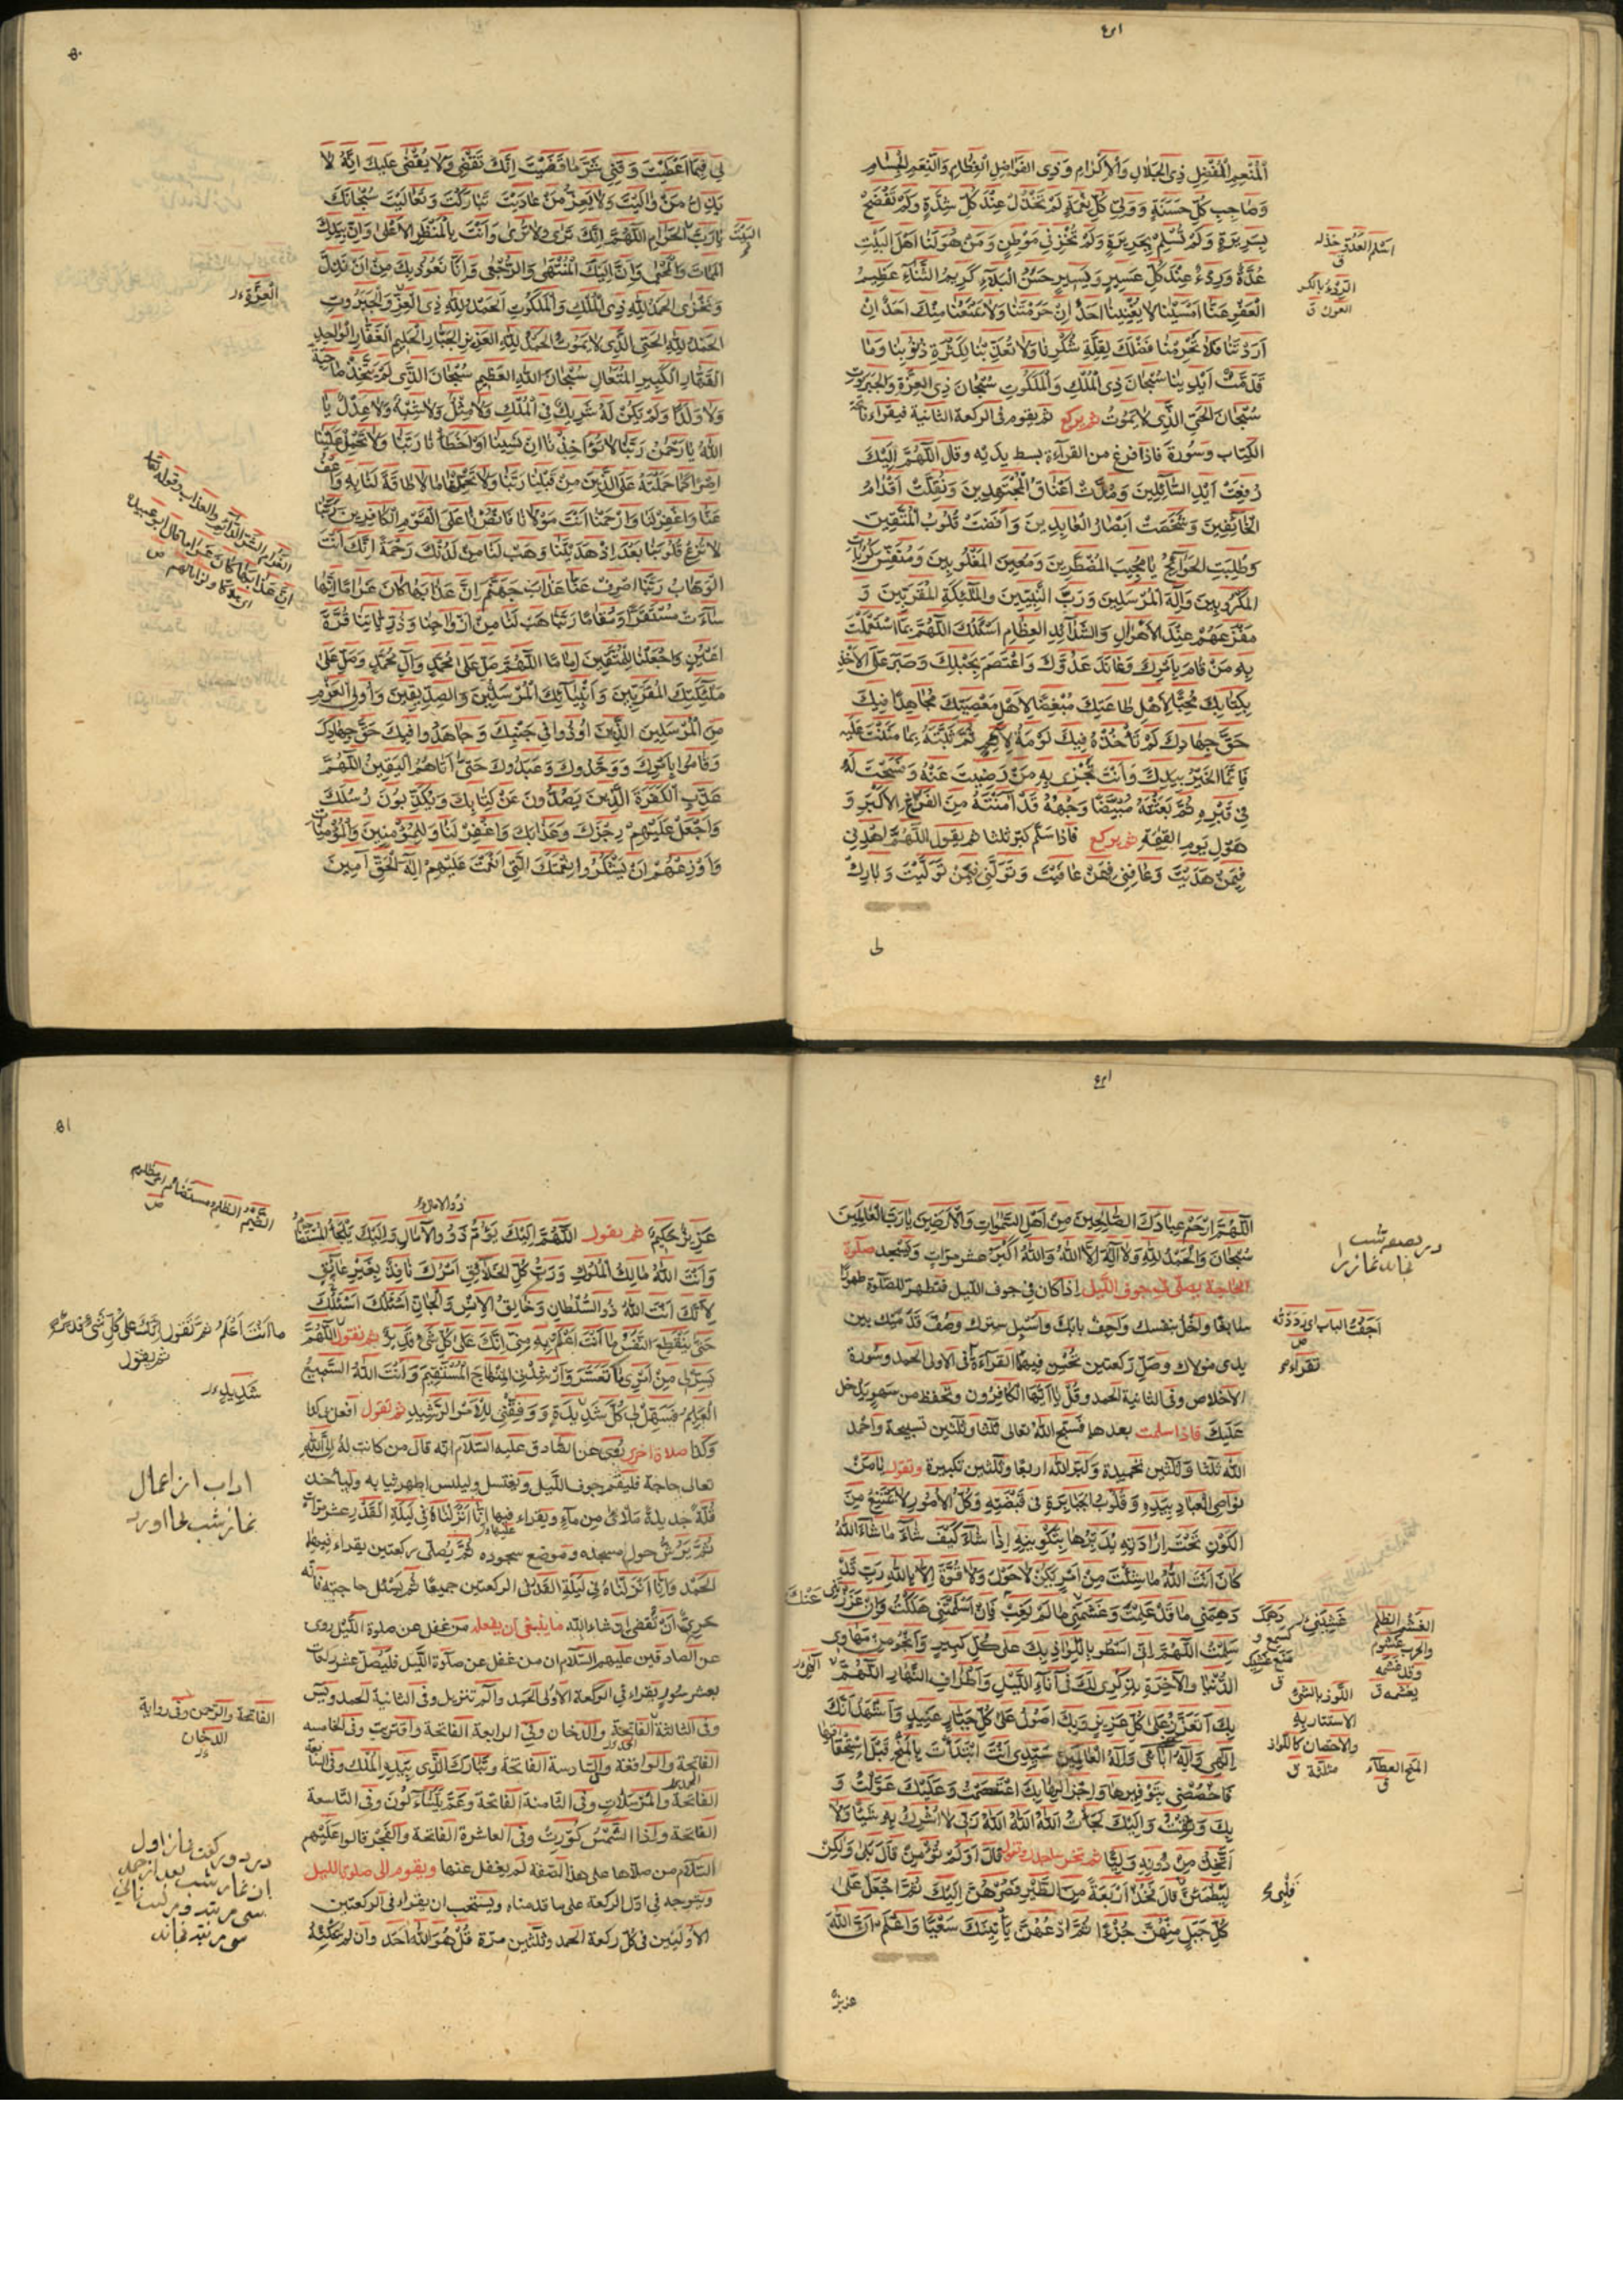 المنعم المفضل ذي الجلال والإكرام وذي الفواضل العظام والنعم الجسام
وصاحب كل حسنة وولي كل نعمة لم تخذل عند كل شدة ولم تفضح
بسريرة ولم تسلم بجريرة ولم تخز في موطن ومن هو لنا أهل البيت
عدة وردء عند كل عسير ويسير حسن البلاء كريم الثناء عظيم
العفو عنا أمسينا لا يغنينا أحد إن حرمتنا ولا يمنعنا منك أحد إن
أردتنا فلا تحرمنا فضلك لقلة شكرنا ولا تعذبنا لكثرة ذنوبنا وما
قدمت أيدينا سبحان ذي الملك والملكوت سبحان ذي العزة والجبروت
سبحان الحي الذي لا يموت ثم يركع ثم يقوم في الركعة الثانية فيقراء فاتحة
الكتاب وسورة فاذا فرغ من القراءة بسط يديه وقال اللهم إليك
رفعت أيدي السائلين ومدت أعناق المجتهدين ونقلت أقدام
الخائفين وشخصت أبصار العابدين وأفضت قلوب المتقين
وطلبت الحوائج يا مجيب المضطرين ومعين المغلوبين ومنفس كربات
المكروبين وإله المرسلين ورب النبيين والملائكة المقربين و
مفزعهم عند الأهوال والشدائد العظام أسئلك اللهم بما استعملت
به من قام بأمرك وعاند عدوك واعتصم بحبلك وصبر على الأخذ
بكتابك محبا لأهل طاعتك مبغضا لأهل معصيتك مجاهدا فيك
حق جهادك لم تأخذه فيك لومة لائم ثم ثبته بما مننت عليه
فإنما الخير بيدك وأنت تجزي به من رضيت عنه وفسحت له
في قبره ثم بعثته مبيضا وجهه قد آمنته من الفزع الأكبر و
هول يوم القيمة ثم يركع فاذا سلم كبر ثلثا ثم يقول اللهم اهدني
فيمن هديت وعافني فيمن عافيت وتولني فيمن توليت وبارك
لي
لي فيما أعطيت وقني شر ما قضيت إنك تقضي ولا يقضى عليك إنه لا
يذل من واليت ولا يعز من عاديت تباركت وتعاليت سبحانك
يا رب البيت الحرام اللهم إنك ترى ولا ترى وأنت بالمنظر الأعلى وإن بيدك
الممات والمحيا وإن إليك المنتهى والرجعى وإنا نعوذ بك من أن نذل
ونخزى الحمد لله ذي الملك والملكوت الحمد لله ذي العز والجبروت
الحمد لله الحي الذي لا يموت الحمد لله العزيز الجبار الحليم الغفار الواحد
القهار الكبير المتعال سبحان الله العظيم سبحان الذي لم يتخذ صاحبة
ولا ولدا ولم يكن له شريك في الملك ولا مثل ولا شبه ولا عدل يا
الله يا رحمن ربنا لا تؤاخذنا إن نسينا أو أخطأنا ربنا ولا تحمل علينا
إصرا كما حملته على الذين من قبلنا ربنا ولا تحملنا ما لا طاقة لنا به واعف
عنا واغفر لنا وارحمنا أنت مولانا فانصرنا على القوم الكافرين ربنا
لا تزغ قلوبنا بعد إذ هديتنا وهب لنا من لدنك رحمة إنك أنت
الوهاب ربنا اصرف عنا عذاب جهنم إن عذابها كان غراما إنها
ساءت مستقرا ومقاما ربنا هب لنا من أزواجنا وذرياتنا قرة
أعين واجعلنا للمتقين إماما اللهم صل على محمد وآل محمد وصل على
ملئكتك المقربين وأنبيائك المرسلين والصديقين وأولي العزم
من المرسلين الذين أوذوا في جنبك وجاهدوا فيك حق جهادك
وقاموا بأمرك ووحدوك وعبدوك حتى أتاهم اليقين اللهم
عذب الكفرة الذين يصدون عن كتابك ويكذبون رسلك
واجعل عليهم رجزك وعذابك واغفر لنا وللمؤمنين والمؤمنات
وأوزعهم أن يشكروا نعمتك التي أنعمت عليهم إله الحق آمين
العزة
اللهم ارحم عبادك الصالحين من أهل السموات والأرضين يا رب العالمين
سبحان والحمد لله ولا إله إلا الله والله أكبر عشر مرات ويسجد صلوة
الحاجة يصلى في جوف الليل إذا كان في جوف الليل فتطهر للصلوة طهورا
سابغا واخل بنفسك وأجف بابك وأسبل سترك وصف قدميك بين
يدي مولاك وصل ركعتين تحسن فيهما القراءة في الاولى الحمد وسورة
الاخلاص وفي الثانية الحمد وقل يا أيها الكافرون وتحفظ من سهو يدخل
عليك فاذا سلمت بعدها فسبح الله تعالى ثلثا وثلثين تسبيحة واحمد
الله ثلثا وثلثين تحميدة وكبر الله اربعا وثلثين تكبيرة وتقول يا من
نواصي العباد بيده وقلوب الجبابرة في قبضته وكل الأمور لا يمتنع من
الكون تحت إرادته يدبرها بتكوينه إذا شاء كيف شاء ما شاء الله
كان أنت الله ما شئت من أمر يكن لا حول ولا قوة إلا بالله رب قد
دهمني ما قد علمت وغشيني ما لم يغب عنك فإن أسلمتني هلكت وإن عززتني
سلمت اللهم إني أسطو باللواذ بك على كل كبير وأنجو من مهاوي
الدنيا والآخرة بذكري لك في آناء الليل وأطراف النهار اللهم
بك أتعزز على كل عزيز وبك أصول على كل جبار عنيد وأشهد أنك
إلهي وإله آبائي وإله العالمين سيدي أنت ابتدأت بالمنح قبل استحقاقها
فاخصصني بتوفيرها وإجزالها بك اعتصمت وعليك عولت و
بك وثقت وإليك لجأت الله الله الله ربي لا أشرك به شيئا ولا
أتخذ من دونه وليا ثم تخر ساجدا وتقول قال أولم تؤمن قال بلى ولكن
ليطمئن قلبي قال فخذ أربعة من الطير فصرهن إليك ثم اجعل على
كل جبل منهن جزءا ثم ادعهن يأتينك سعيا واعلم أن الله
عزيز
عزيز حكيم ثم يقول اللهم إليك يؤم ذوو الآمال وإليك يلجأ المستضام
وأنت الله مالك الملوك ورب كل الخلائق أمرك نافذ بغير عائق
لأنك أنت الله ذو السلطان وخالق الإنس والجان أسئلك أسئلك
حتى ينقطع النفس ما أنت أعلم به مني إنك على كل شيء قدير ثم تقول اللهم
يسر لي من أمري ما تعسر وأرشدني المنهاج المستقيم وأنت الله السميع
العليم فسهل لي كل شديدة ووفقني للأمر الرشيد ثم تقول افعل بي كذا
وكذا صلاة اخرى روي عن الصادق عليه السلام انه قال من كانت له إلى الله
تعالى حاجة فليقم جوف الليل ويغتسل وليلبس اطهر ثيابه وليأخذ
قلة جديدة ملأى من ماء ويقراء فيها إنا أنزلناه في ليلة القدر عشر مرات
ثم يرش حول مسجده وموضع سجوده ثم يصلى ركعتين يقراء فيهما
الحمد وإنا أنزلناه في ليلة القدر في الركعتين جميعا ثم يسئل حاجته فانه
حري أن تقضى إن شاء الله ما ينبغي أن يفعله من غفل عن صلوة الليل روى
عن الصادقين عليهم السلام ان من غفل عن صلوة الليل فليصل عشر ركعات
بعشر سور يقراء في الركعة الاولى الحمد والم تنزيل وفي الثانية الحمد ويس
وفي الثالثة الفاتحة والدخان وفي الرابعة الفاتحة واقتربت وفي الخامسه
الفاتحة والواقعة وفي السادسة الفاتحة وتبارك الذي بيده الملك وفي السابعة
الفاتحة والمرسلات وفي الثامنة الفاتحة وعم يتساءلون وفي التاسعة
الفاتحة وإذا الشمس كورت وفي العاشرة الفاتحة والفجر قالوا عليهم
السلام من صلاها على هذه الصفة لم يغفل عنها ويقوم الى صلوة الليل
ويتوجه في اول الركعة على ما قدمناه ويستحب ان يقراء في الركعتين
الاوليين في كل ركعة الحمد وثلثين مرة قل هو الله أحد وان لم يمكنه
ما أنت أعلم ثم تقول إنك على كل شيء قدير
ثم يقول
آداب از اعمال
نماز شب بجا اورد
الفاتحة والرحمن وفي رواية
الدخان